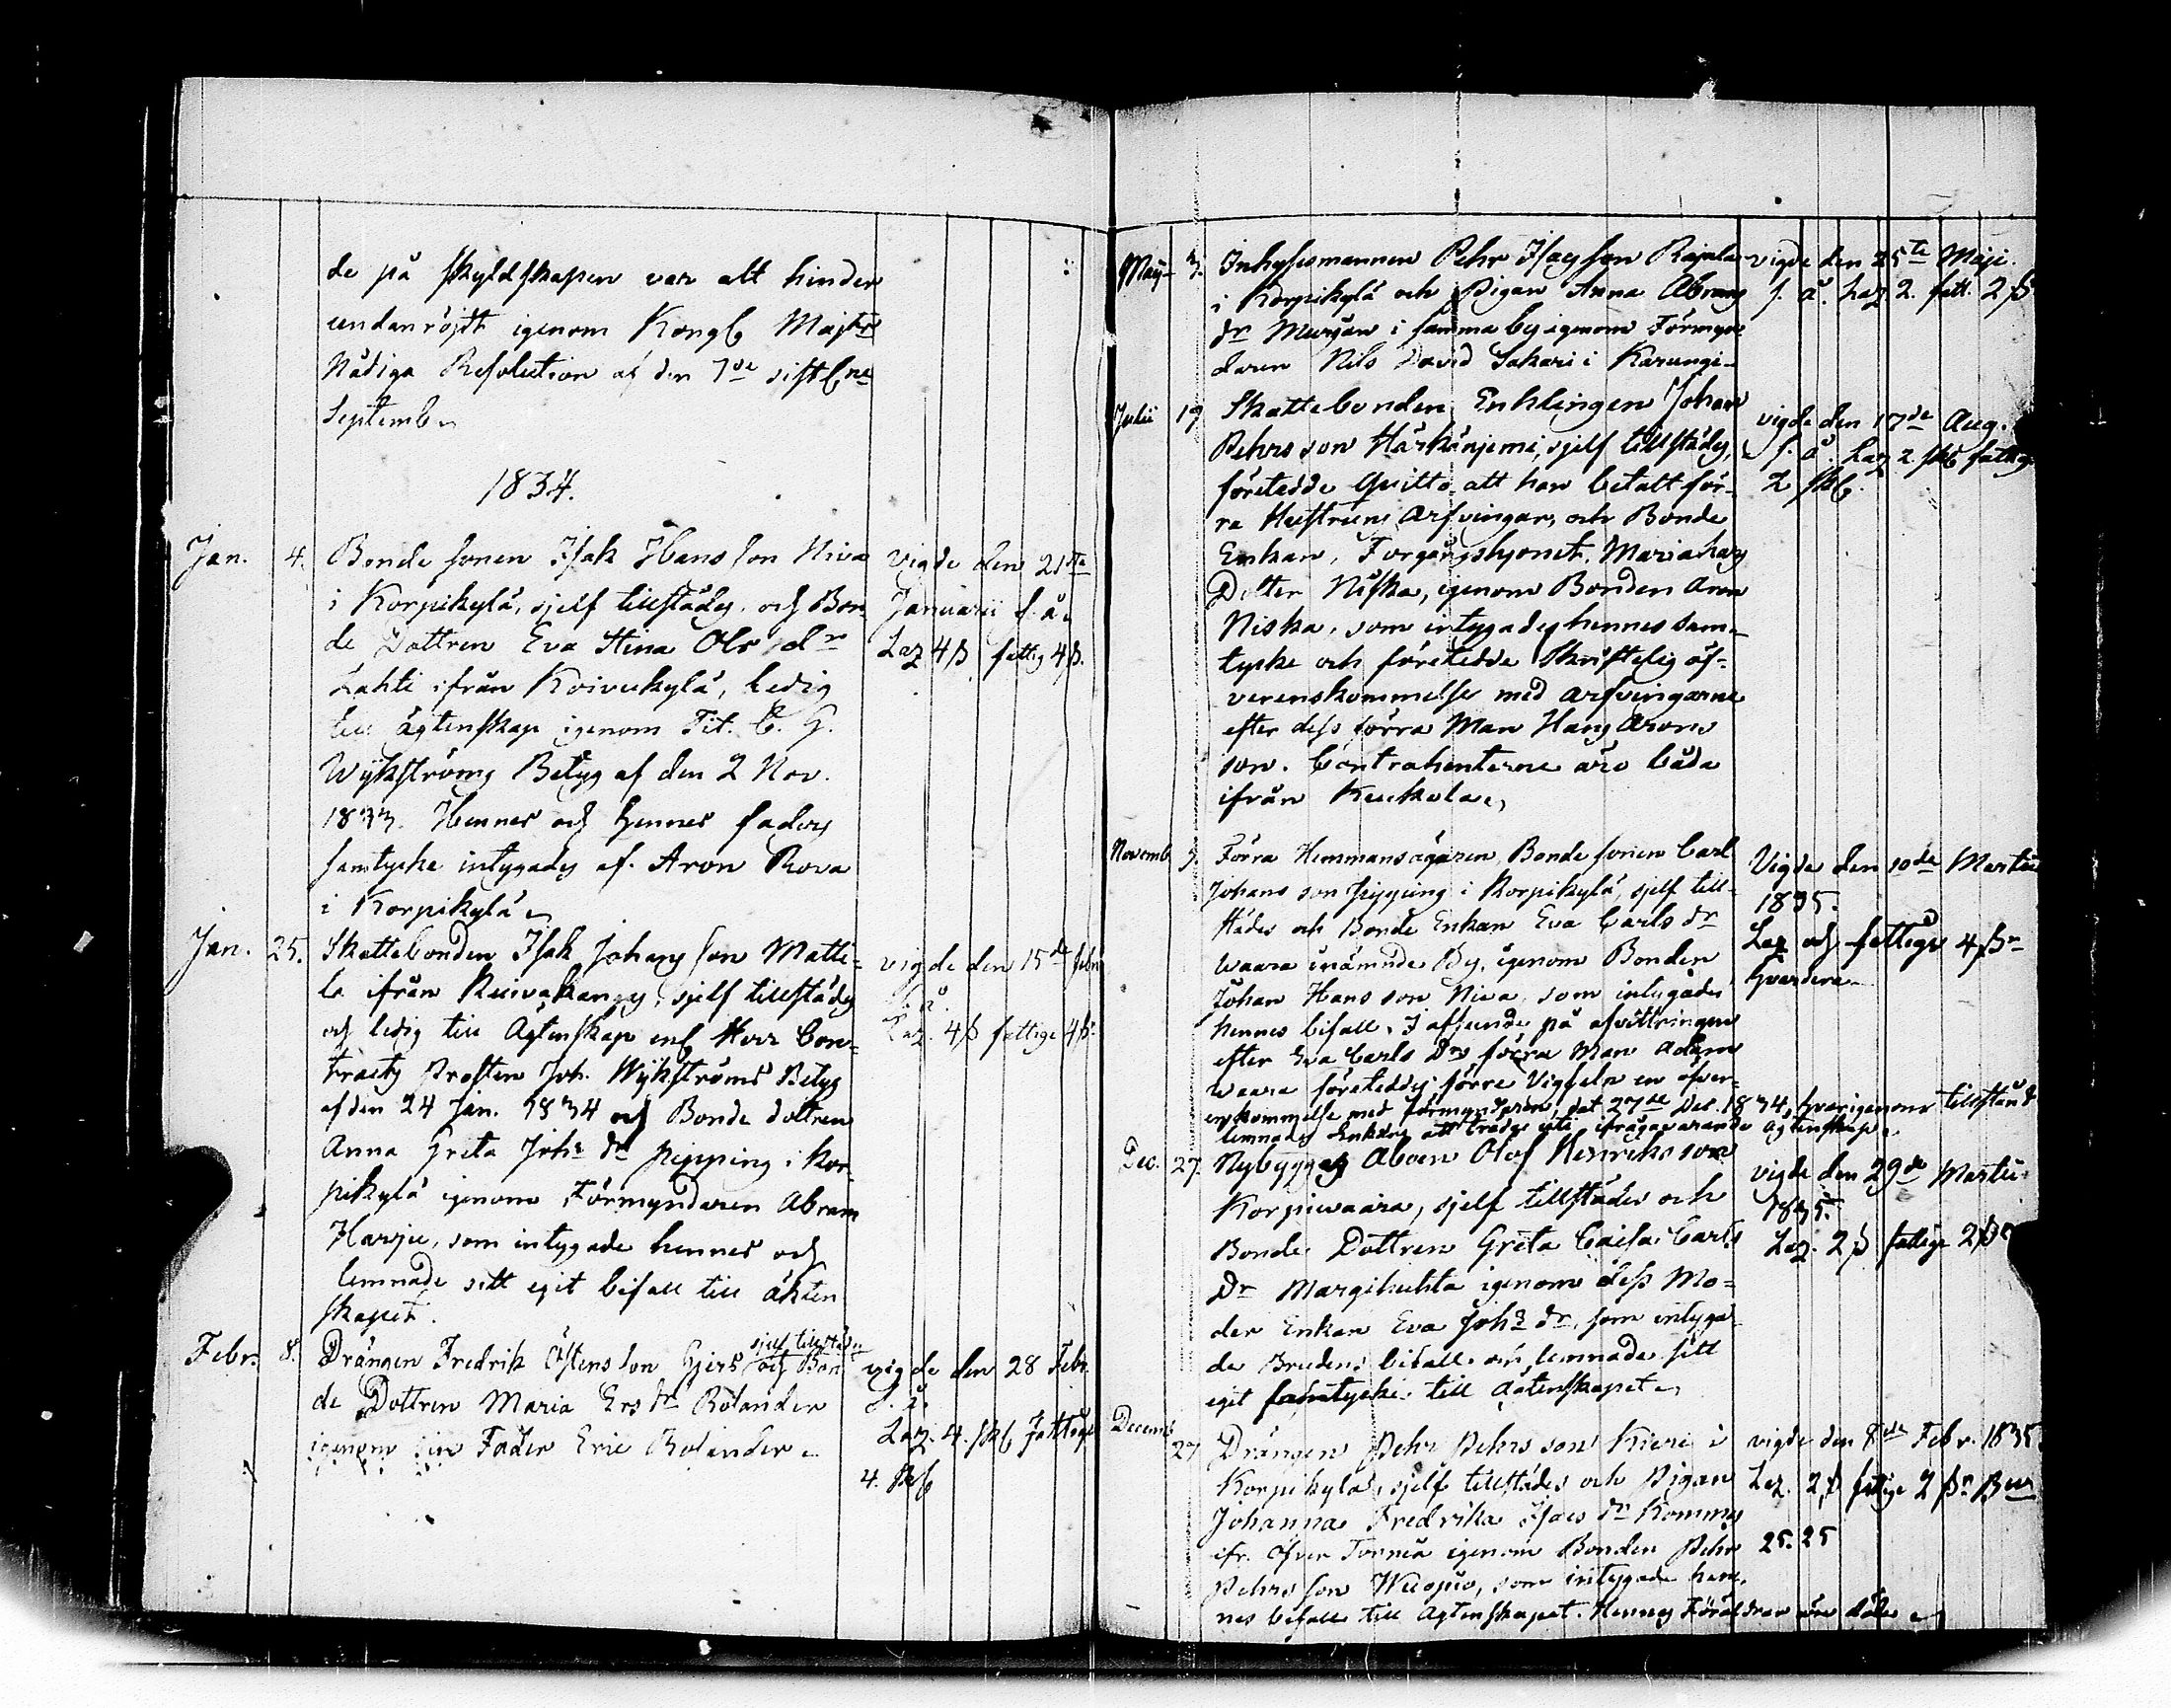 de på skyldskapen var alt hinder
undanröjdt igenom Kongl Majts
Nådiga Resolution af den 7de sistl.ne
Septemb.
1834.
Jan. 4. Bonde sonen Isak Hans son Niva
i Korpikylä, sjelf tillstädes, och Bon
de Dottren Eva Stina Ols dr
Lahti ifrån Koivukylä, ledig
till ägtenskap igenom Tit. C. G.
Wykströms Betyg af den 2 Nov.
1833. Hennes och hennes faders
samtycke intygades af Aron Rova
i Korpikylä
vigde den 21sta
Januarii s. å.
Laz 4 ß fattig 4 ß.
Jan. 25. Skattebonden Isak Johans son Matti-
la ifrån Ruivakangs, sjelf tillstädes
och ledig till Ägtenskap enl Herr Con-
tracts Prosten Joh. Wykströms Betyg
af den 24 Jan. 1834 och Bonde dottren
Anna Greta Johs dr Pipping i Kor-
pikylä igenom Förmyndaren Abram
Harju, som intygade hennes och
lemnade sitt egit bifall till äkten
skapet.
vigde den 15de febr
s. å.
Laz. 4 ß fattige 4 ß.
Febr. 8. Drängen Fredrik Östens son Gjers sjelf tillstädes och Bon
de Dottren Maria Ers dr Rolander
igenom sin Fader Eric Rolander
vigde den 28 Febr.
s. å.
Laz. 4. skl fattige
4. skl
May 3. Inhysesmannen Pehr Isacs son Rajala
i Korpikylä och Pigan Anna Abrams
dr i samma by igenom Förmyn
daren Nils David Sakari i Karungi
vigde den 25te Maji.
s. å. Laz 2. fatt. 2 ß
Julii 19 Skattebonden Enklingen Johan
Pehrs son Härkänjemi, sjelf tillstädes,
företedde Quitto att han betalt för-
ra Hustruns Arfvingar, och Bonde
Enkan, Maria Lars
Dotter Niska, igenom Bonden Aron
Niska, som intygades hennes sam-
tycke och företedde Skriftelig öf-
verenskommelse med arfvingarne
efter dess förra Man Hans Arons
son. Contrahenterne äro båda
ifrån Kuckola
vigde den 17de Aug.
s. å. Laz 2. skl fattig
2 skl.
Novemb. Förra Hemmansägaren, Bonde sonen Carl
Johans son Pipping i Korpikylä, sjelf till-
städes och Bonde Enkan Eva Carls dr
Waara i nämnde By, igenom Bonden
Johan Hans son Niva, som intygades
hennes bifall. I afseende på afvittringen
efter Eva Carls Drs förra Man Adam
Waara företeddes förre Vigseln en öfver-
enskommelse med förmyndaren, dat 27de Dec. 1834, hvarigenom tillstånd
lemnades Enkan att träda uti ifrågavarande ägtenskap.
Vigde den 10de Martii
1835.
Laz och fattige 4 ßr
hvardera
Dec. 27. Nybyggas Aboen Olof Henriks son
Korpiwaara, sjelf tillstädes och
Bonde Dottren Greta Caisa Carls
Dr Margikuhta igenom dess Mo-
der Enkan Eva Johs dr, som intyga
de Brudens bifall och lemnade sitt
eget samtycke till ägtenskapet
vigde den 29de Martii
1835.
Laz. 2 ß fattige 2 ß
Decemb. 27 Drängen Pehr Pehrs son Kieri i
Korpikylä, sjelf tillstädes och Pigan
Johanna Fredrika Isacs dr Komms
ifr. Öfver Torneå igenom Bonden Pehr
Pehrs son Wuopio, som intygade hen-
nes bifall till ägtenskapet. Hennes Föräldrar äro döde
vigde den 8de Febr. 1835.
Laz. 2 ß fattige 2 ßr
25.25